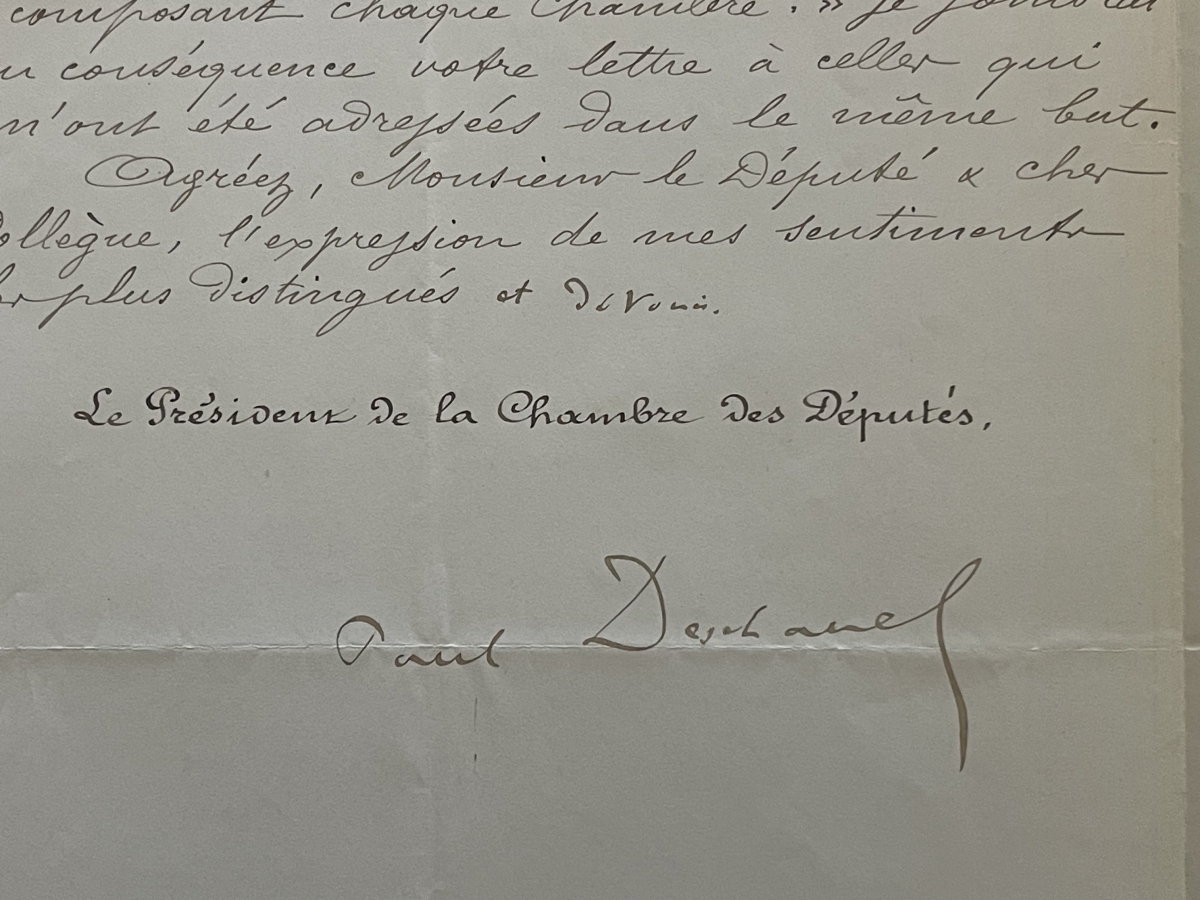 composant chaque Chambre. » Je joins
conséquence votre lettre à celles qui
m'ont été adressées dans le même but.
Agréez, Monsieur le Député & cher
Collègue, l'expression de mes sentiments
les plus distingués et dévoués.
Le Président de la Chambre des Députés,
Paul Deschanel